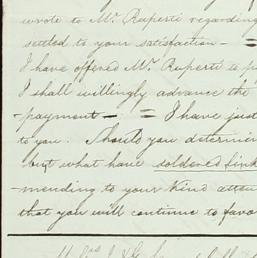 wrote to Mr. Ruperti regarding
settled to your satisfaction — =
I have offered Mr. Ruperti to p
I shall willingly advance the
-payment — = I have just
to you. Should you determin
but what have soldered link
-mending to your kind atten
that you will continue to favo